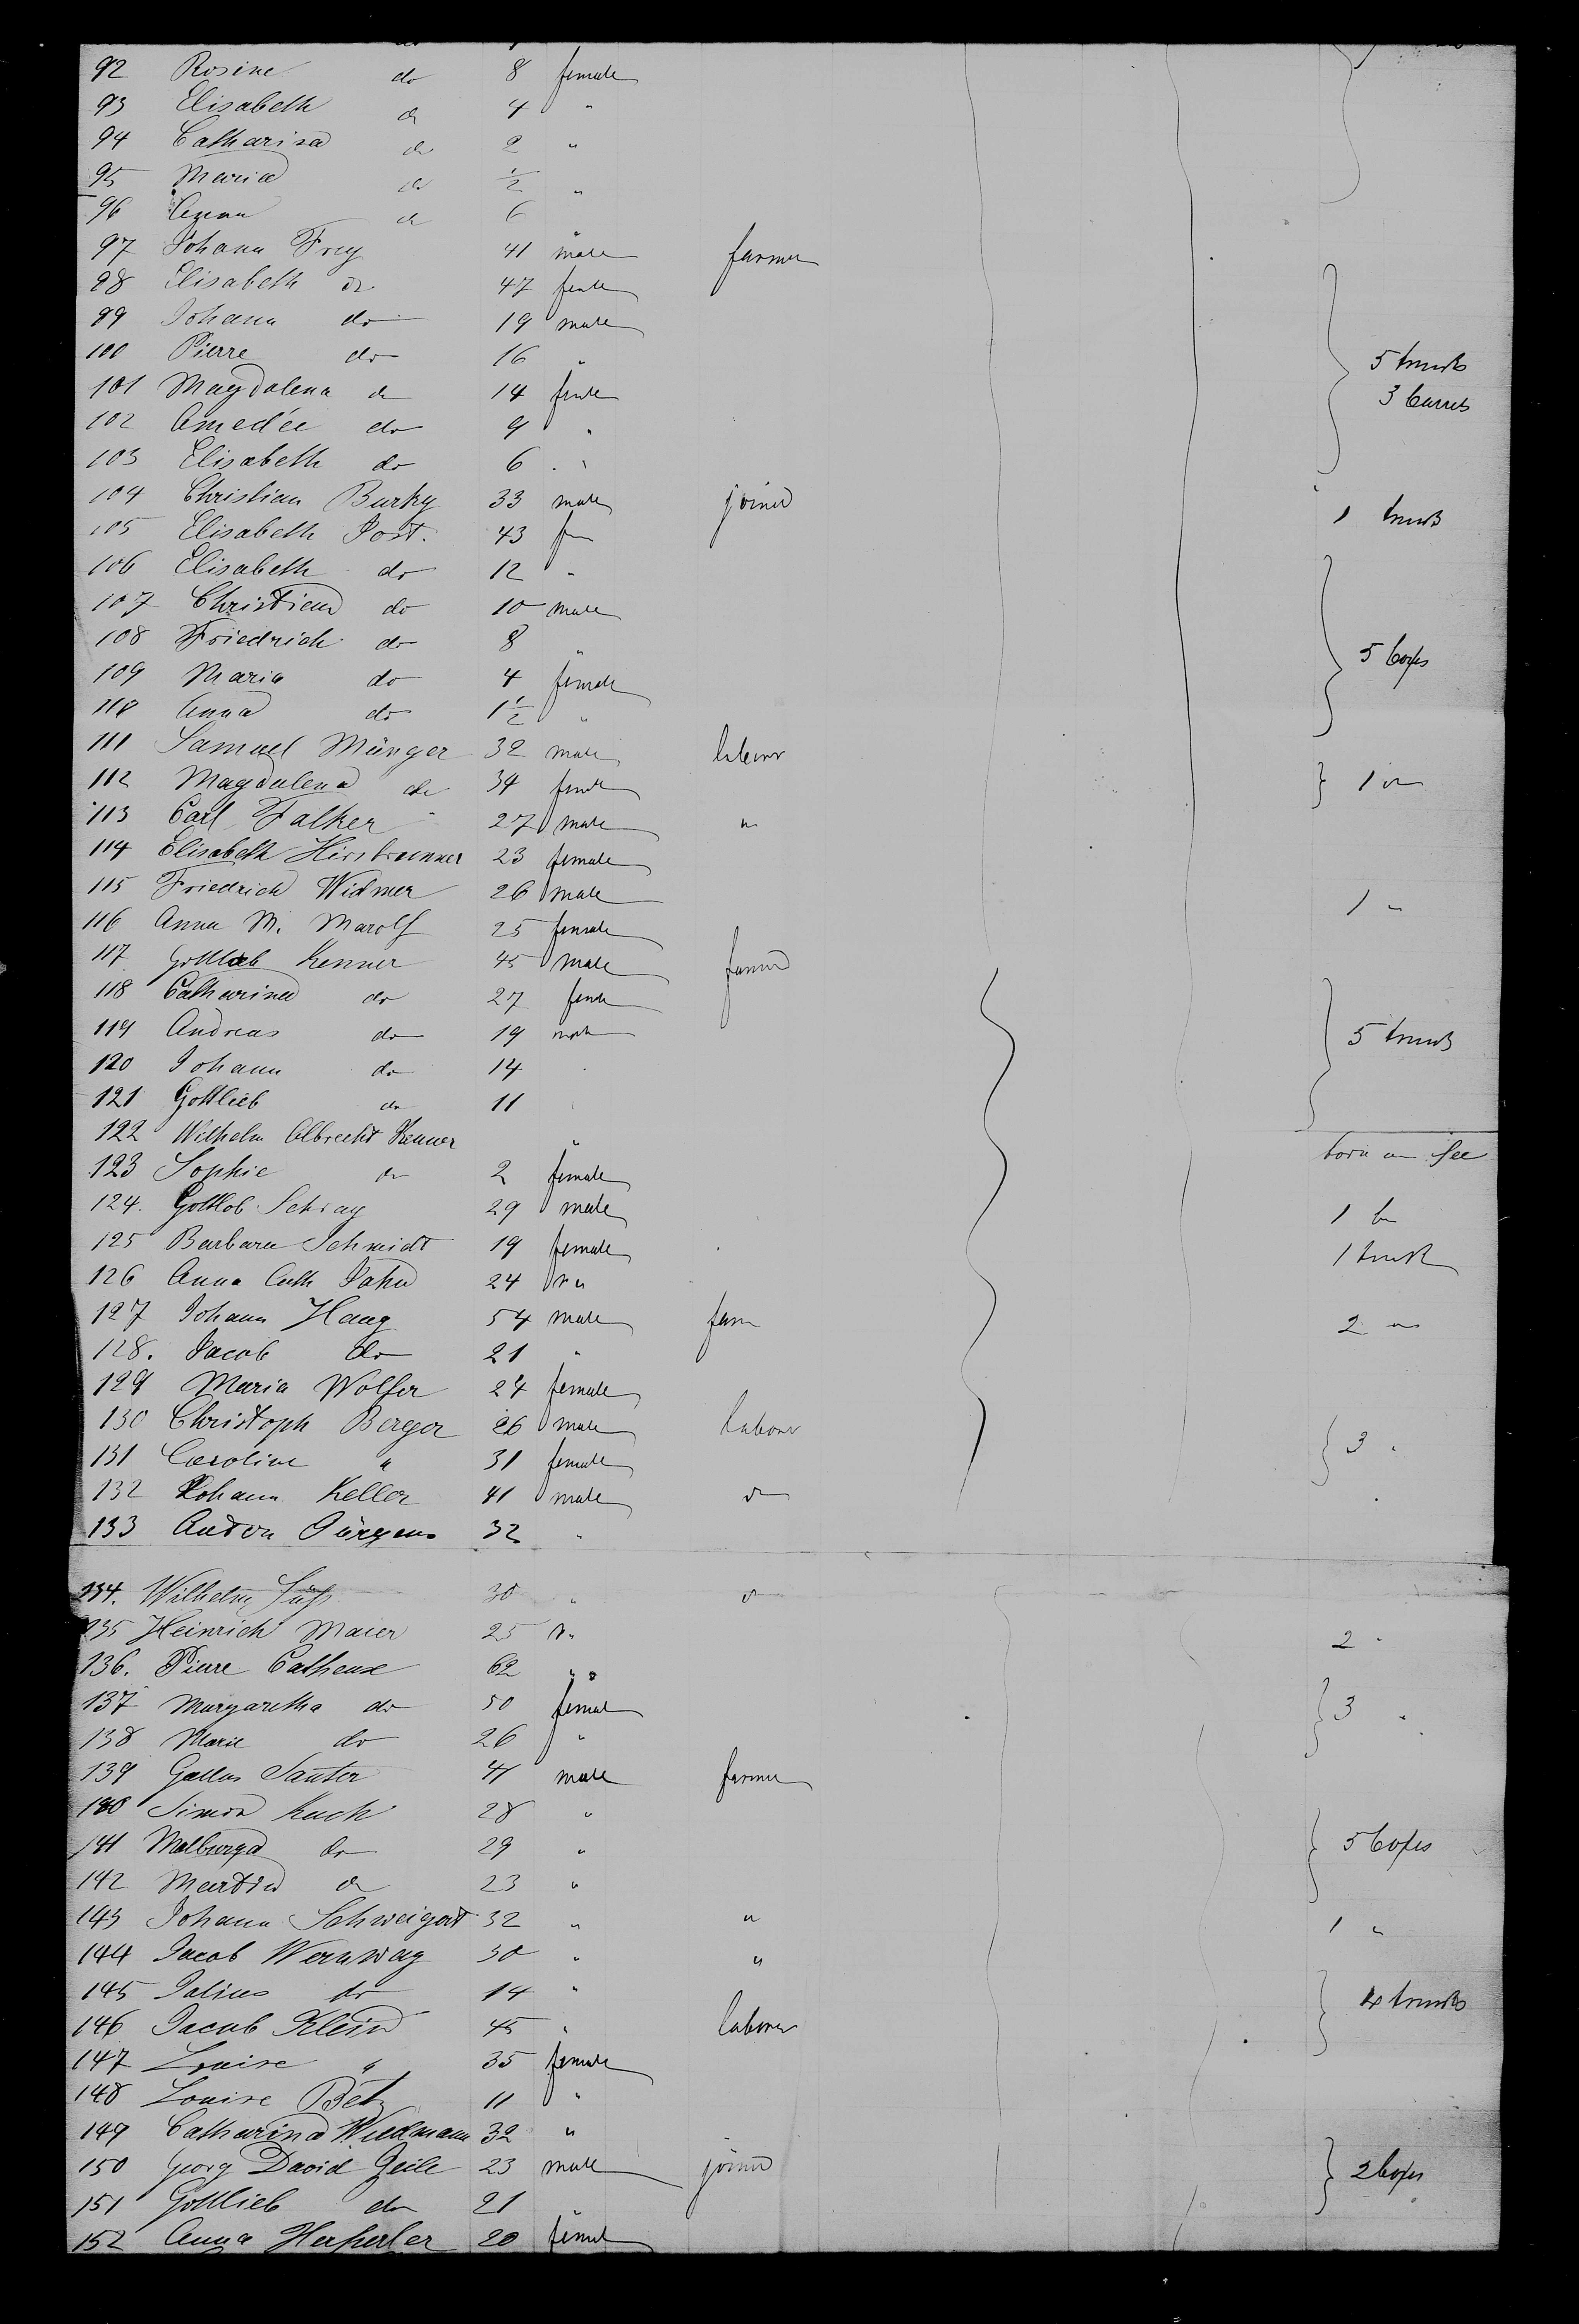 92 Rosine do 8 female
93 Elisabeth do 4 "
94 Catharina do 2 "
95 Maria do ½ "
96 Anna do 6 "
97 Johann Frey 41 male farmer
98 Elisabeth do 47 female
99 Johann do 19 male
100 Pierre do 16 " 5 trunks
101 Magdalena do 14 female 3 barrels
102 Amedée do 9 "
103 Elisabeth do 6 "
104 Christian Burky 33 male joiner 1 trunk
105 Elisabeth Jost. 43 fem
106 Elisabeth do 12 "
107 Christian do 10 male
108 Friedrich do 8 " 5 boxes
109 Maria do 4 female
110 Anna do 1½ "
111 Samuel Münger 32 male labour
112 Magdalena do 34 female 1 do
113 Carl Falker 27 male "
114 Elisabeth Hirsbrunner 23 female
115 Friedrich Widmer 26 male 1 "
116 Anna M. Marolf 25 female
117 Gottlieb Kenner 45 male farmer
118 Catharina do 27 female
119 Andreas do 19 male 5 trunks
120 Johann do 14 "
121 Gottlieb do 11 "
122 Wilhelm Albrecht Kenner " born on See
123 Sophie do 2 female
124. Gottlob Schray 29 male 1 box
125 Barbara Schmidt 19 female 1 trunk
126 Anna Cath Jahn 24 "
127 Johann Haag 54 male farm 2 "
128. Jacob do 21 "
129 Maria Wolfer 24 female
130 Christoph Berger 26 male labour 3 "
131 Caroline " 31 female
132 Johann Keller 41 male do
133 Anton Jürgens 32 "
134. Wilhelm Süß 30 " do
135 Heinrich Maier 25 " 2 "
136. Pierre 62 "
137 Margaretha do 50 female 3 "
138 Marie do 26 "
139 Gallus Sauter 41 male farmer
140 Simon Kuch 28 "
141 Walburga do 29 " 5 boxes
142 Martin do 23 "
143 Johann Schweigert 32 " " 1 "
144 Jacob Wernwag 30 " "
145 Julius do 14 " 4 trunks
146 Jacob Klein 45 " laborer
147 Louise " 35 female
148 Louise Betz 11 "
149 Catharina Wiedmann 32 "
150 Georg David Zeile 23 male joiner 2 boxes
151 Gottlieb do 21 "
152 Anna 20 female